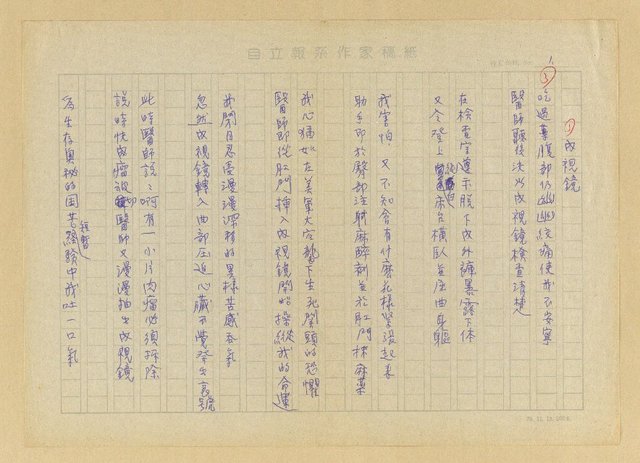 自立報系作家稿紙
1
① 內視鏡
① 吃過藥腹部仍幽幽絞痛使我不安寧
醫師聽後決以內視鏡檢查清楚
在檢查室遵示脫下內外褲暴露下体
又令登上床台橫臥並屈曲身軀
我害怕 又不知會有什麻花樣緊張起來
助手即於臀部注射麻醉劑並於肛門抹麻藥
我心猶如在美軍大空襲下生死關頭的恐懼
醫師即從肛門插入內視鏡開始操縱我的命運
我閉目忍受漫漫深稜的異樣苦感吞氣
忽然內視鏡轉入曲部压迫心臟不覺發出哀號
此時醫師說:啊有一小片肉瘤必須拆除
說時快肉瘤被切醫師又漫漫抽出內視鏡
為生存奧秘的困苦經驗中我吐一口氣
短暫